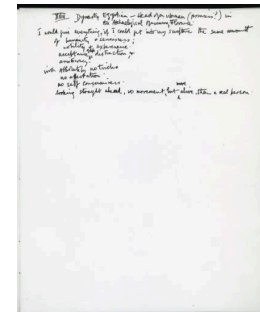 XVIII Dynasty Egyptian – head of a woman ('princess'?) in
an Archeological Museum, Florence
I would give everything, if I could get into my sculpture the same amount
of humanity & seriousness;
nobility & experience;
acceptance, distinction, &
with absolutely no tricks
no affectation
no self consciousness
looking straight ahead, no movement, but more alive, than a real person.